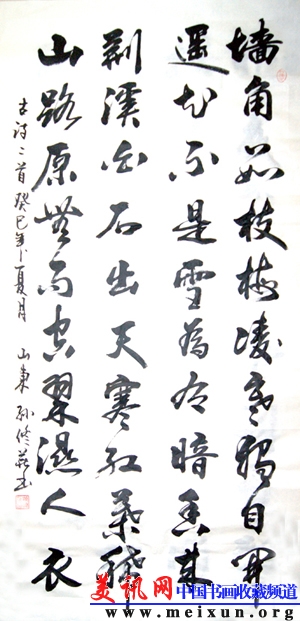 墙角数枝梅凌寒独自开
遥知不是雪為有暗香来
荆溪白石出天寒红葉稀
山路原無雨空翠湿人衣
古诗二首 癸巳年夏月 山東 孙修
美讯网 中国书画收藏频道
www.meixun.org